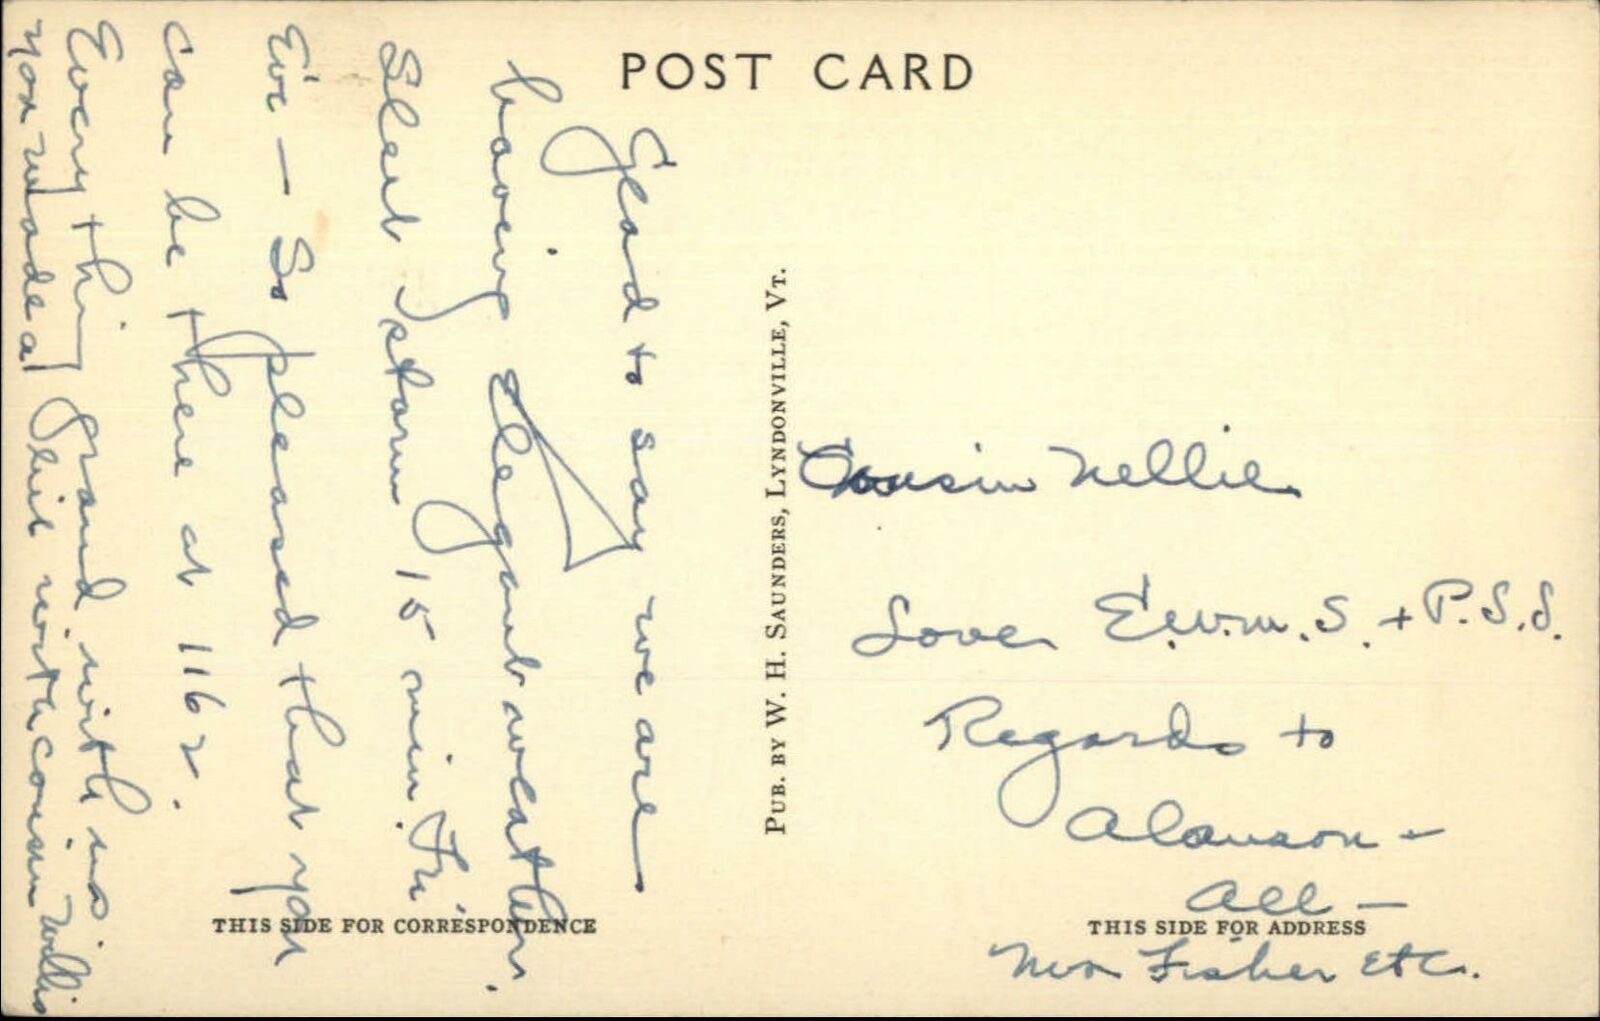 POST CARD
Glad to say we are
having elegant weather.
Sleet storm 15 min. Fri.
Eve — So pleased that you
can be there at 1162.
Every thing grand with us
you made a hit with cousin Willis
PUB. BY W. H. SAUNDERS, LYNDONVILLE, VT.
Cousin Nellie
Love E.W.M.S. + P.S.S.
Regards to
Alanson —
All —
Mrs Fisher Etc.
THIS SIDE FOR CORRESPONDENCE
THIS SIDE FOR ADDRESS